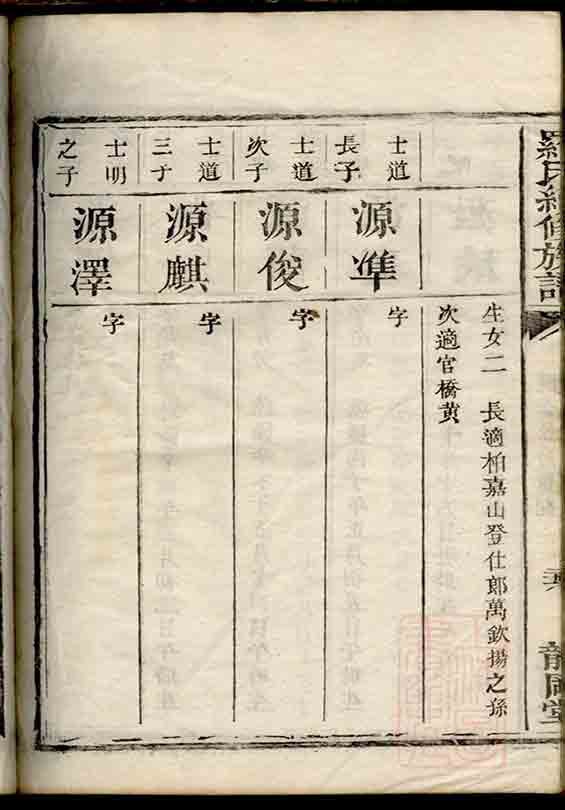 羅氏續修族譜
龍岡堂
生女二 長適柏嘉山登仕郎萬欽揚之孫
次適官橋黄
士道
長子
源準
字
士道
次子
源俊
字
士道
三子
源麒
字
士明
之子
源澤
字